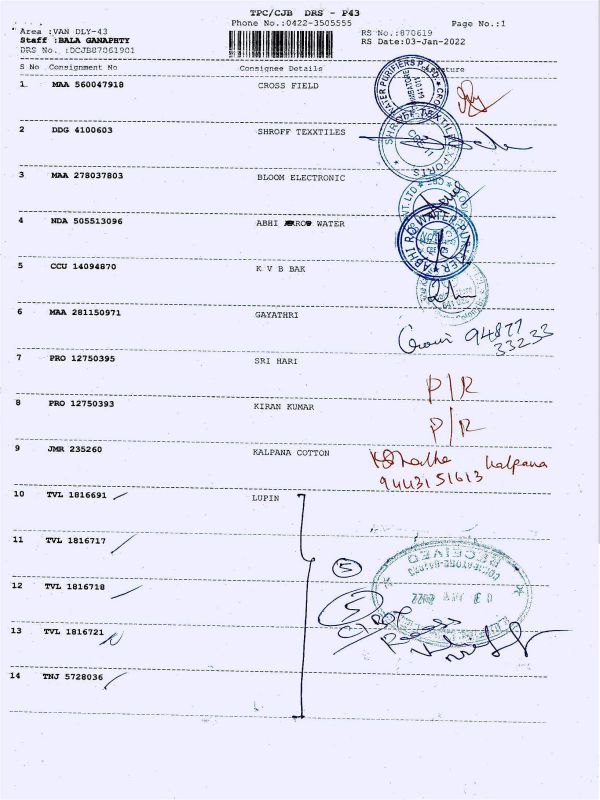 TPC/CJB DRS - P43
Phone No.:0422-3505555 Page No.:1
Area :VAN DLY-43 RS No.:870619
Staff :BALA GANAPHTY RS Date:03-Jan-2022
DRS No. :DCJB87061901
S No Consignment No Consignee Details Signature
1 MAA 560047918 CROSS FIELD
2 DDG 4100603 SHROFF TEXXTILES
3 MAA 278037803 BLOOM ELECTRONIC
4 NDA 505513096 ABHI WATER
5 CCU 14094870 K V B BAK
6 MAA 281150971 GAYATHRI
Gowri 94877
33233
7 PRO 12750395 SRI HARI
P/R
8 PRO 12750393 KIRAN KUMAR
P/R
9 JMR 235260 KALPANA COTTON
Kalpana
9443151613
10 TVL 1816691 LUPIN
11 TVL 1816717
RECEIVED
5
12 TVL 1816718
5
13 TVL 1816721
14 TNJ 5728036